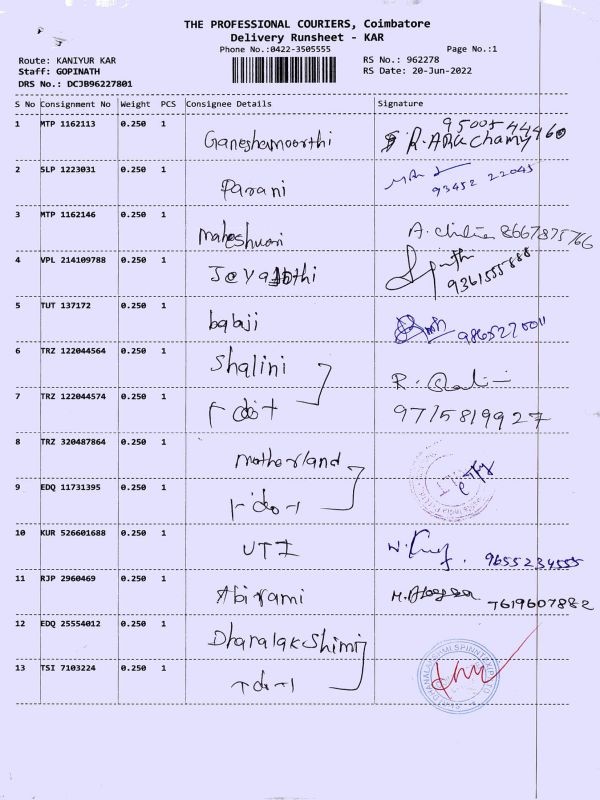 THE PROFESSIONAL COURIERS, Coimbatore
Delivery Runsheet - KAR
Phone No.:0422-3505555
Page No.:1
Route: KANIYUR KAR
RS No.: 962278
Staff: GOPINATH
RS Date: 20-Jun-2022
DRS No.: DCJB96227801
S No Consignment No Weight PCS Consignee Details Signature
1 MTP 1162113 0.250 1 Ganeshamoorthi R. ARUchamy 9500544460
2 SLP 1223031 0.250 1 Parani 93452 22045
3 MTP 1162146 0.250 1 maheshwari A. 8667875766
4 VPL 214109788 0.250 1 9361555888
5 TUT 137172 0.250 1 babaji 9865270011
6 TRZ 122044564 0.250 1 Shalini R. Shalini
7 TRZ 122044574 0.250 1 9715819927
8 TRZ 320487864 0.250 1 motherland
9 EDQ 11731395 0.250 1
10 KUR 526601688 0.250 1 UTI 9655234555
11 RJP 2960469 0.250 1 Abirami 7619607882
12 EDQ 25554012 0.250 1 Dhanalakshimi
13 TSI 7103224 0.250 1